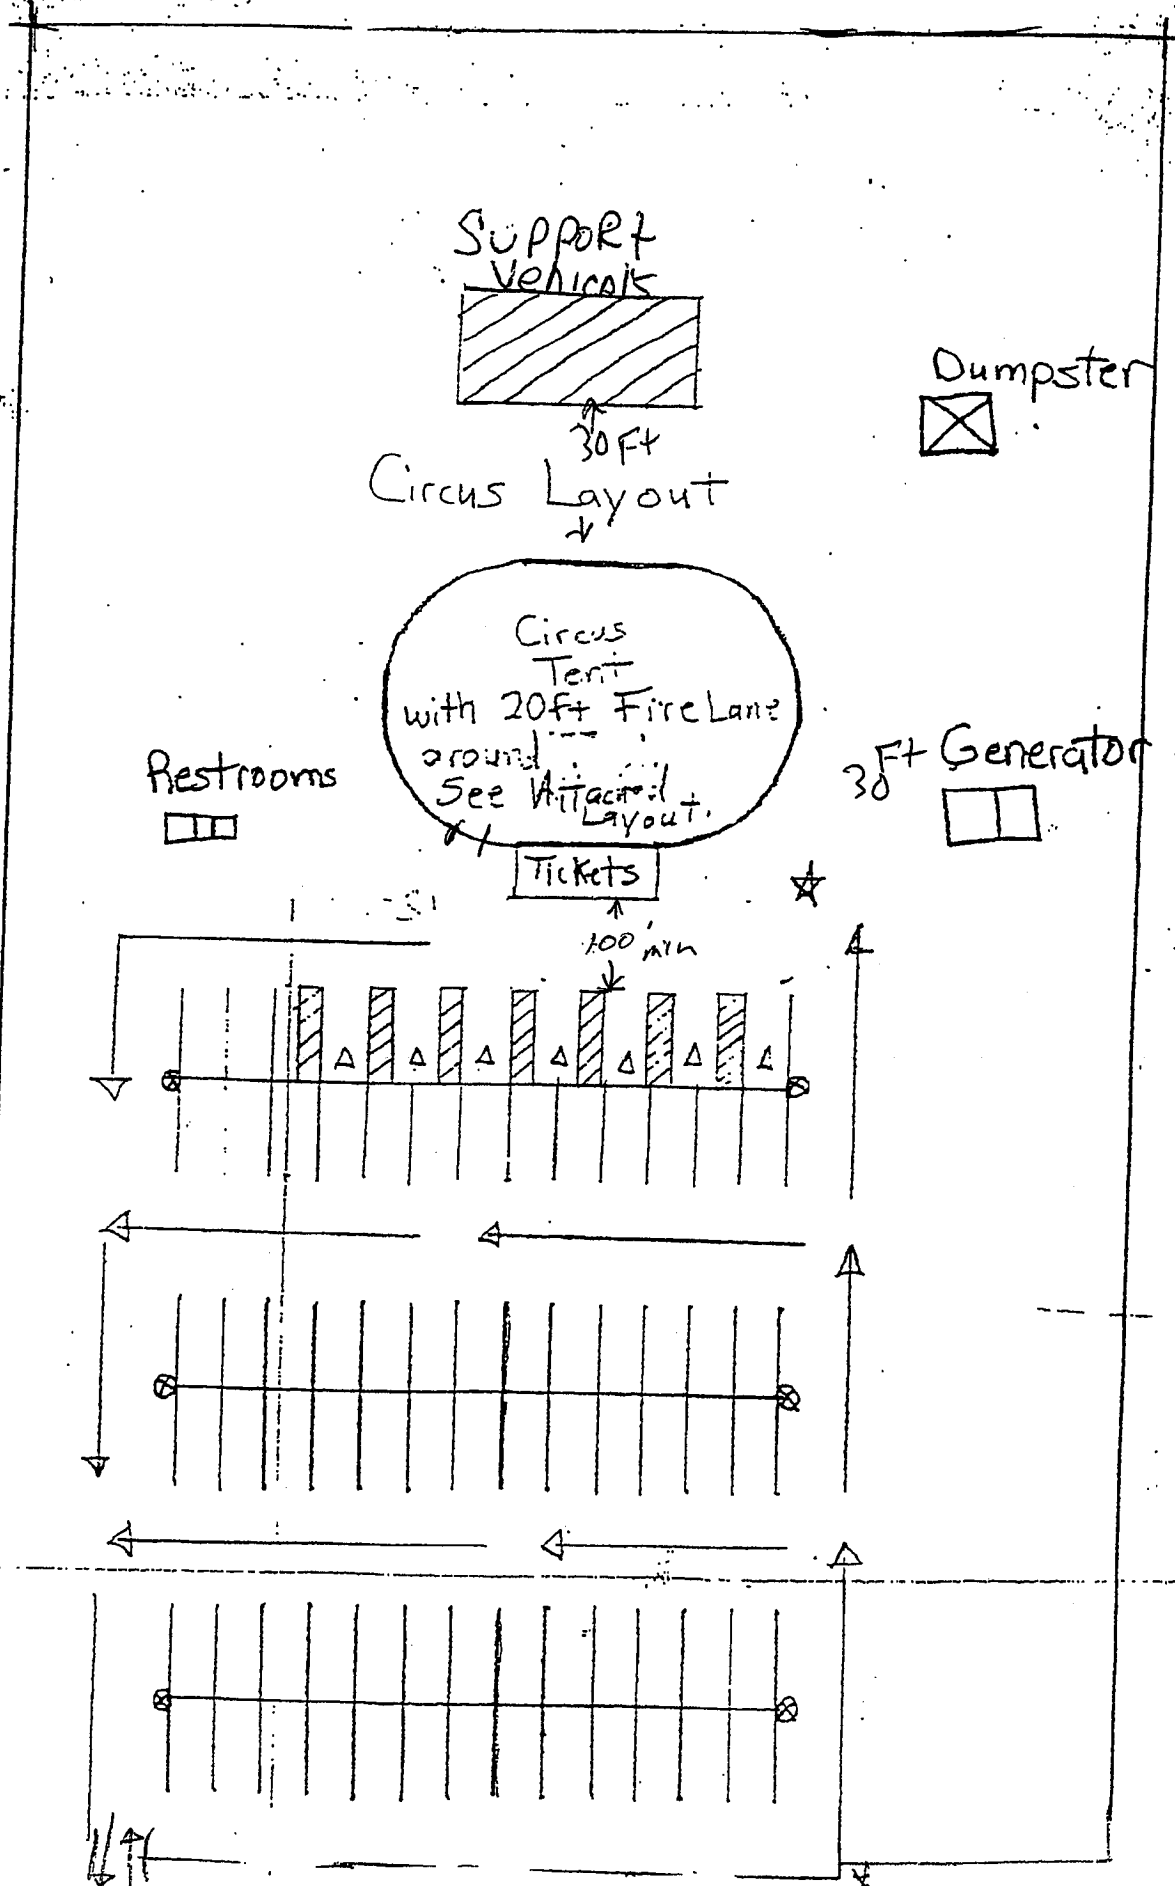 Support
Vehicals
Dumpster
30 Ft
Circus Layout
Circus
Tent
with 20ft Fire Lane
around
See Attached
Layout.
Restrooms
30 Ft Generator
Tickets
100' min